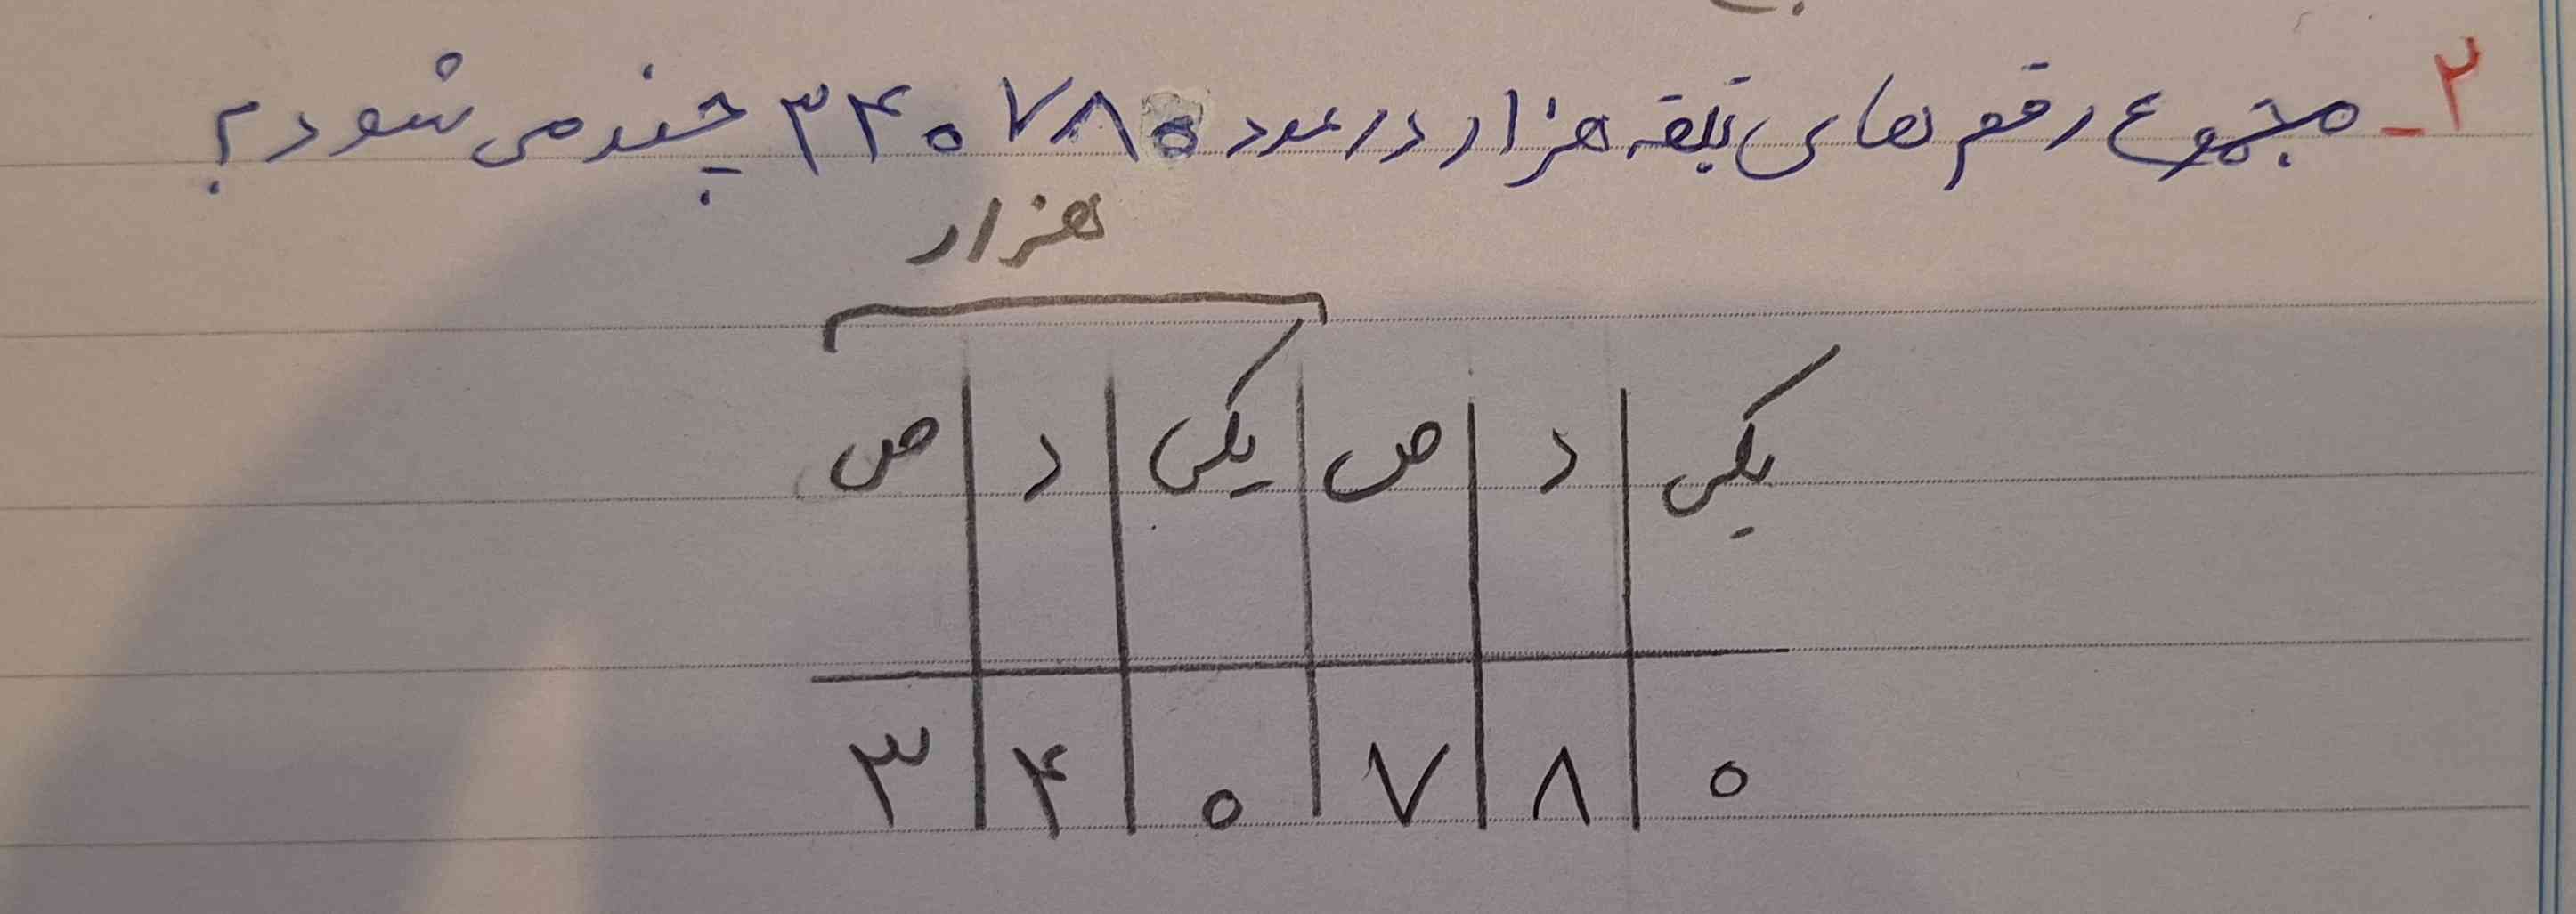 ۲- مجموع رقم های طبقه هزار در عدد ۳۴۰۷۸۰ چند می شود؟
هزار
ص د یکی ص د یکی
۳ ۴ ۰ ۷ ۸ ۰